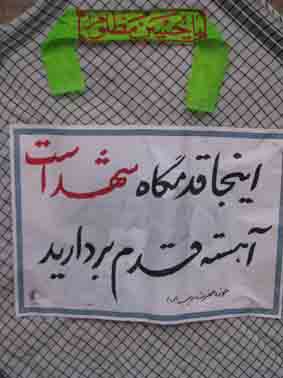 یا حسین مظلوم
اینجا قدمگاه شهداست
آهسته قدم بردارید
حوزه حضرت